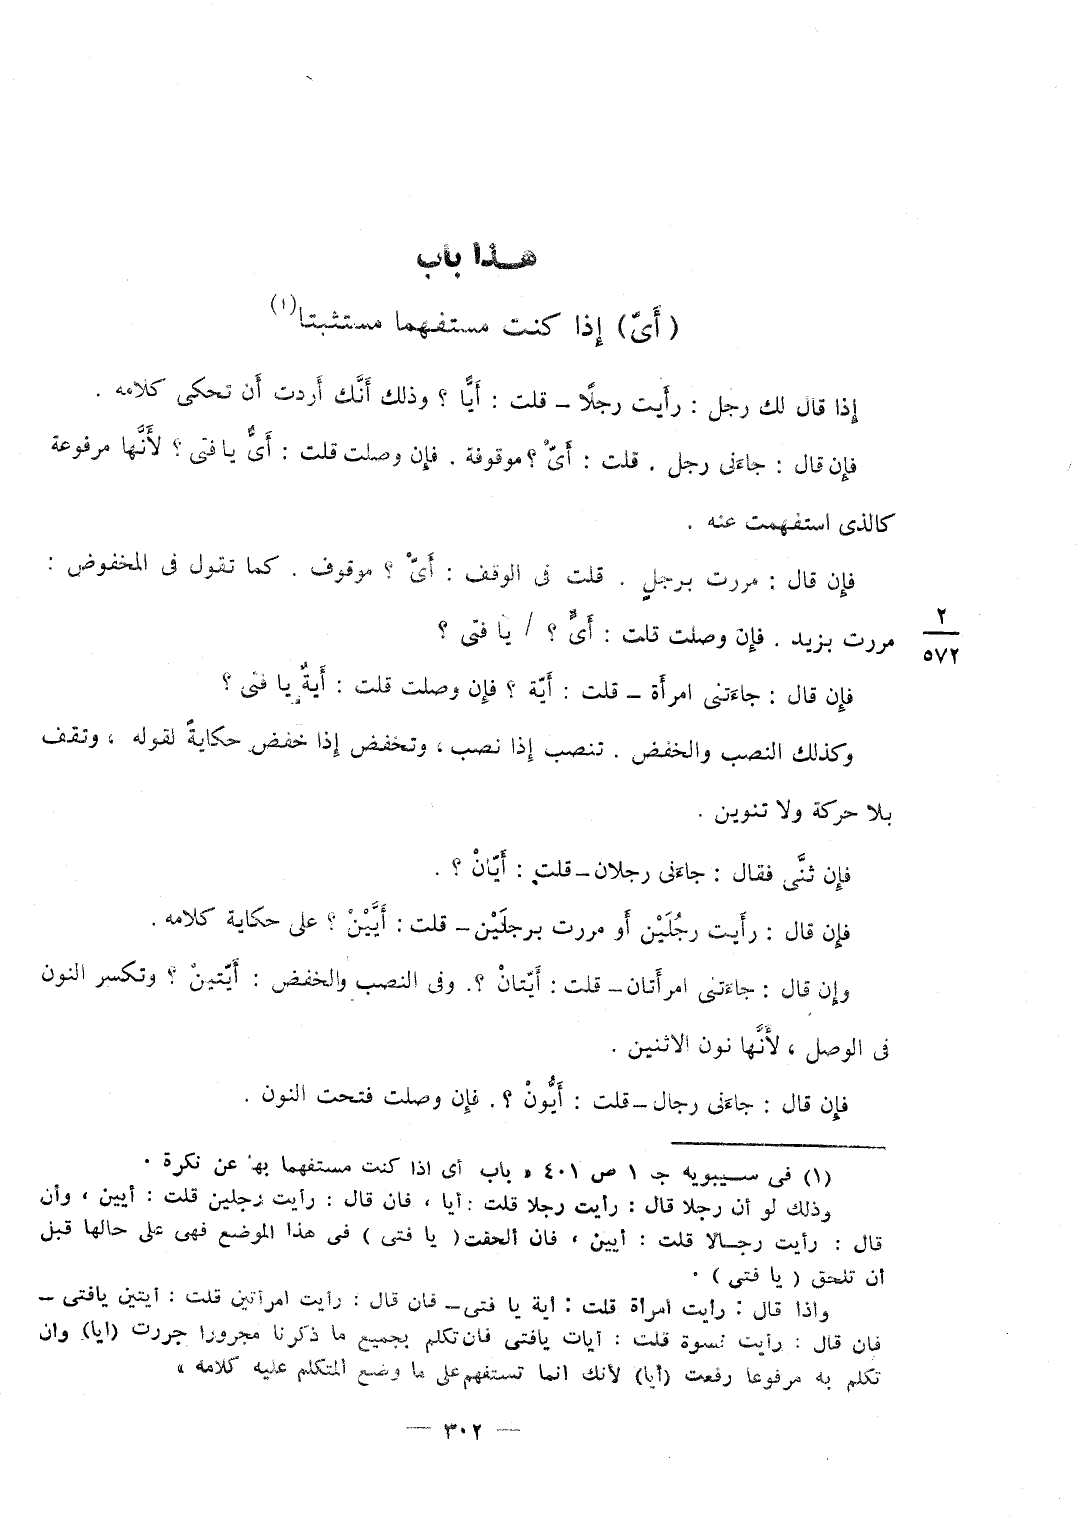 هــذا باب
( أَىّ ) إِذا كنت مستفهما مستثبتا(١)
إِذا قال لك رجل : رأَيت رجلًا – قلت : أَيًّا ؟ وذلك أَنَّك أَردت أَن تحكى كلامه .
فإِن قال : جاءَنى رجل . قلت : أَىّْ ؟ موقوفة . فإِن وصلت قلت : أَىٌّ يا فتى ؟ لأَنَّها مرفوعة
كالذى استفهمت عنه .
فإِن قال : مررت برجلٍ . قلت فى الوقف : أَىّْ ؟ موقوف . كما تقول فى المخفوض :
مررت بزيد . فإِن وصلت قلت : أَىٍّ ؟ / يا فتى ؟
٢
٥٧٢
فإِن قال : جاءَتنى امرأَة – قلت : أَيّة ؟ فإِن وصلت قلت : أَيةٌ يا فتى ؟
وكذلك النصب والخفض . تنصب إِذا نصب ، وتخفض إِذا خفض حكايةً لقوله ، وتقف
بلا حركة ولا تنوين .
فإِن ثنَّى فقال : جاءَنى رجلان – قلت : أَيّانْ ؟ .
فإِن قال : رأَيت رجُلَيْن أَو مررت برجلَيْن – قلت : أَيَّيْنْ ؟ على حكاية كلامه .
وإِن قال : جاءَتنى امرأَتان – قلت : أَيّتانْ ؟. وفى النصب والخفض : أَيّتينْ ؟ وتكسر النون
فى الوصل ، لأَنَّها نون الاثنين .
فإِن قال : جاءَنى رجال – قلت : أَيُّونْ ؟. فإِن وصلت فتحت النون .
(١) فى سـيبويه جـ ١ ص ٤٠١ « باب أى اذا كنت مستفهما بها عن نكرة .
وذلك لو أن رجلا قال : رأيت رجلا قلت : أيا ، فان قال : رأيت رجلين قلت : أيين ، وأن
قال : رأيت رجـالا قلت : أيين ، فان ألحقت ( يا فتى ) فى هذا الموضع فهى على حالها قبل
أن تلحق ( يا فتى ) .
واذا قال : رأيت أمرأة قلت : أية يا فتى – فان قال : رأيت امرأتين قلت : أيتين يافتى –
فان قال : رأيت نسوة قلت : أيات يافتى فان تكلم بجميع ما ذكرنا مجرورا جررت (أيا) وان
تكلم به مرفوعا رفعت (أيا) لأنك انما تستفهم على ما وضع المتكلم عليه كلامه »
— ٣٠٢ —